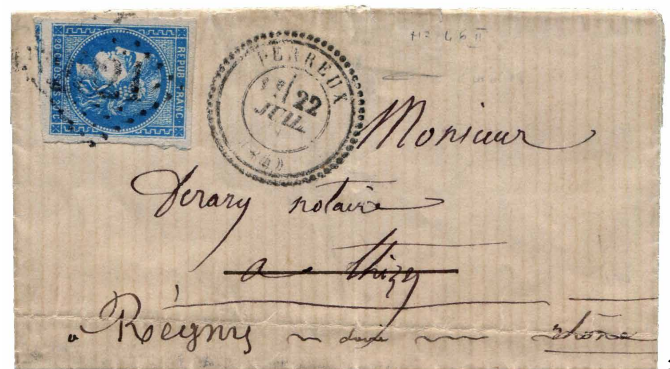 REPUB. FRANC.
PERREUX
22
JUIL.
Monsieur
Derary notaire
a Thizy
a Régny
Rhône